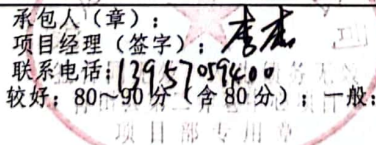 承包人（章）：
项目经理（签字）：李杰
联系电话：13957059400
较好；80～90分（含80分）；一般：
项目部专用章